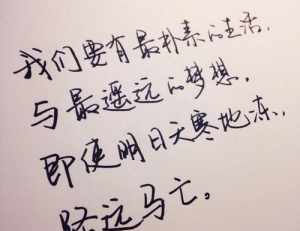 我们要有最朴素的生活,
与最遥远的梦想,
即使明日天寒地冻,
路远马亡。